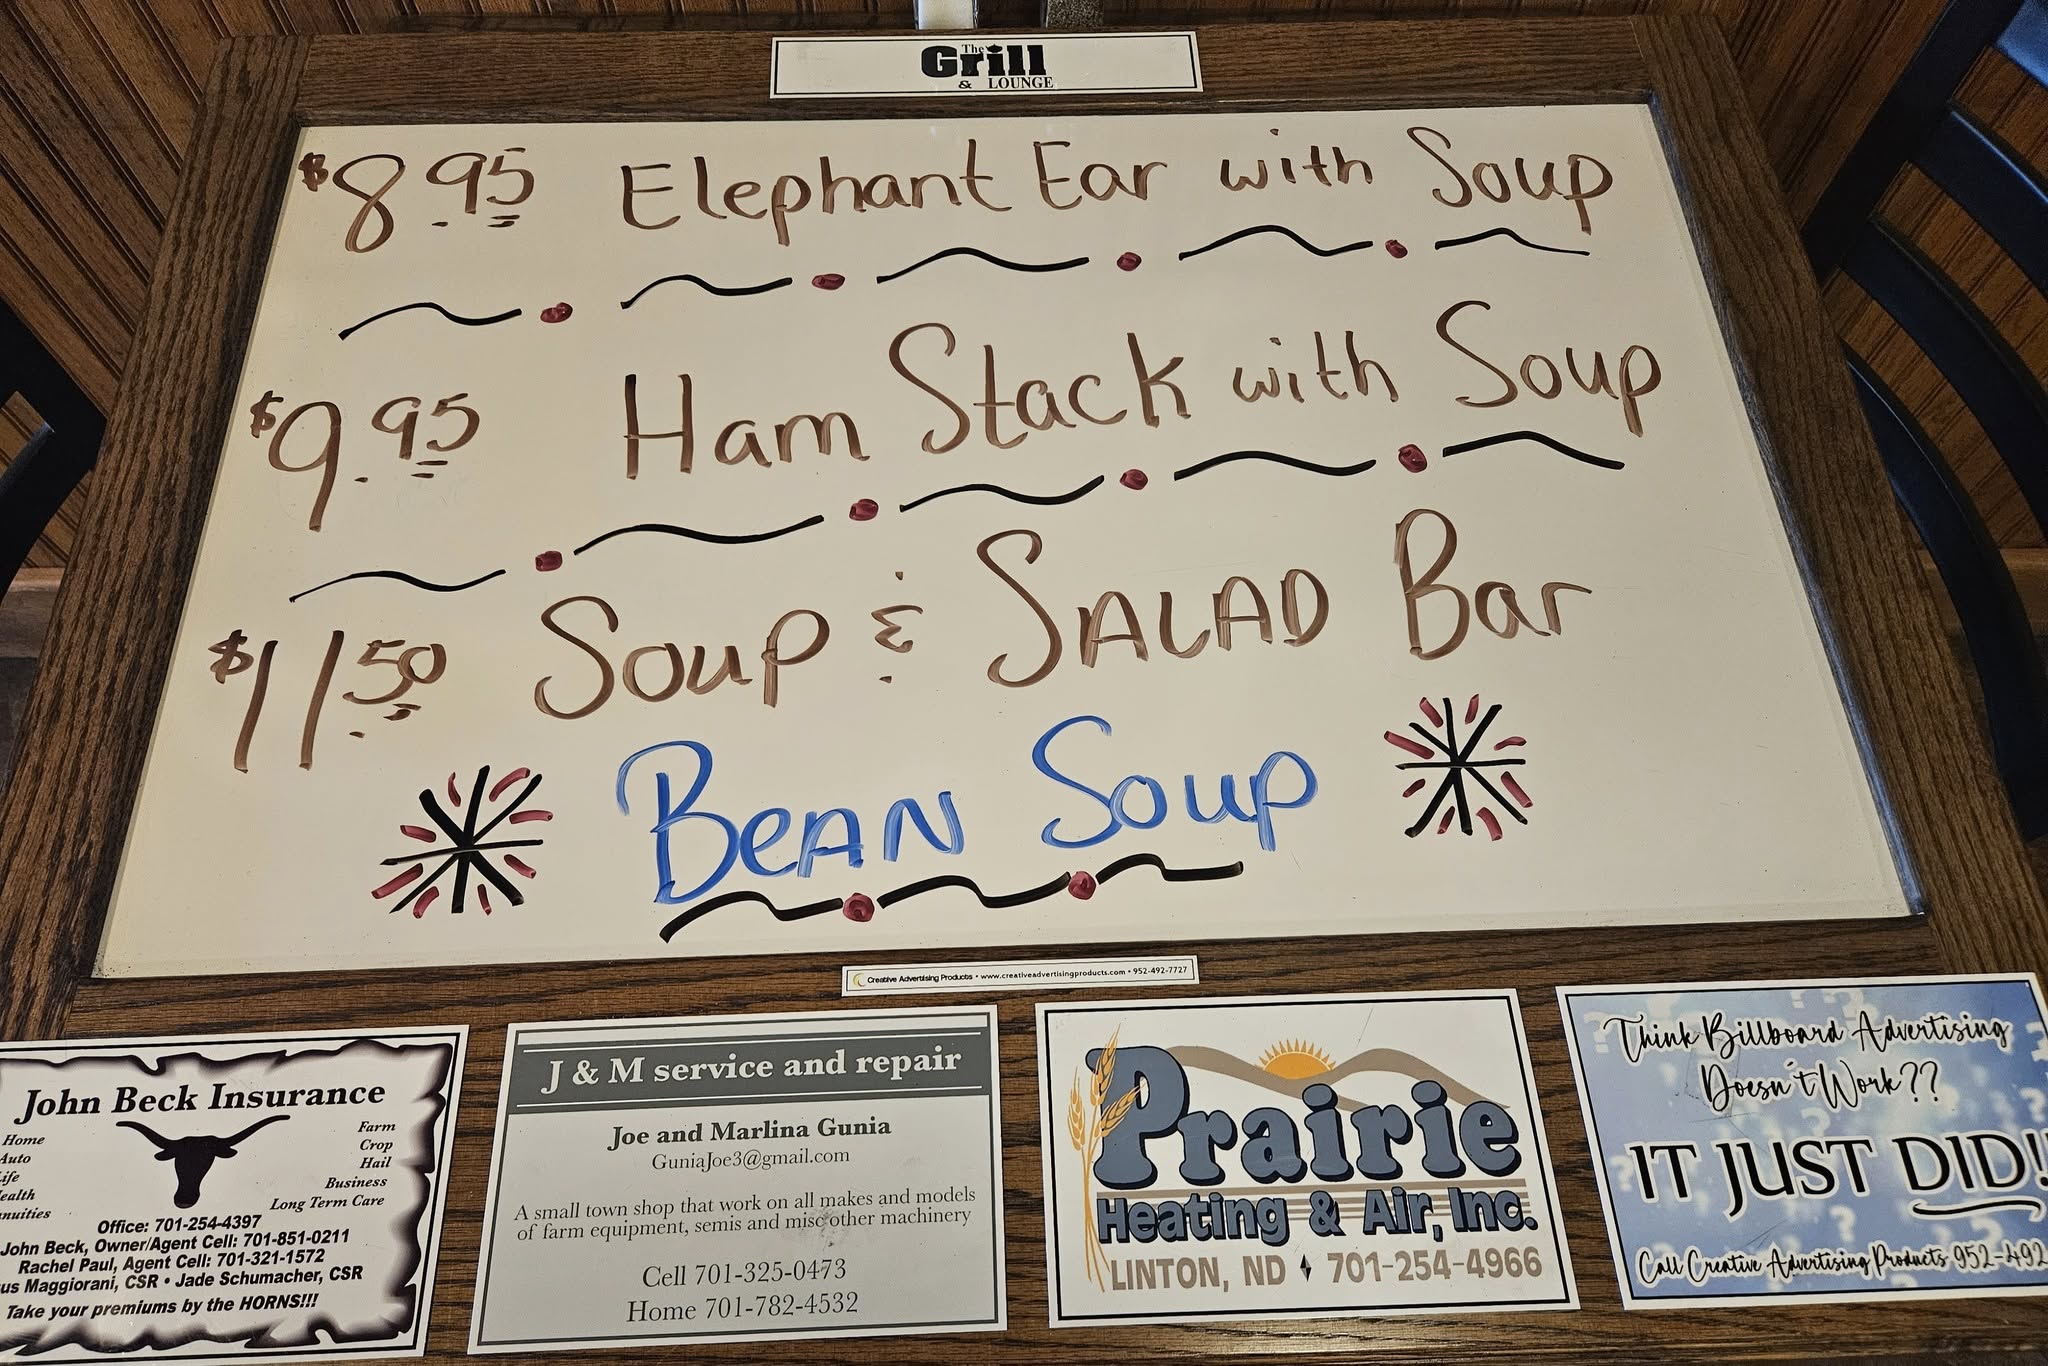 The
Grill
& LOUNGE
$8.95 Elephant Ear with Soup
$9.95 Ham Stack with Soup
$11.50 Soup & SALAD Bar
BeAN Soup
Creative Advertising Products • www.creativeadvertisingproducts.com • 952-492-7727
John Beck Insurance
Home
Auto
Farm
Crop
Hail
Business
Long Term Care
Office: 701-254-4397
John Beck, Owner/Agent Cell: 701-851-0211
Rachel Paul, Agent Cell: 701-321-1572
Maggiorani, CSR • Jade Schumacher, CSR
Take your premiums by the HORNS!!!
J & M service and repair
Joe and Marlina Gunia
GuniaJoe3@gmail.com
A small town shop that work on all makes and models
of farm equipment, semis and misc other machinery
Cell 701-325-0473
Home 701-782-4532
Prairie
Heating & Air, Inc.
LINTON, ND ♦ 701-254-4966
Think Billboard Advertising
Doesn't Work??
IT JUST DID!!
Call Creative Advertising Products 952-492